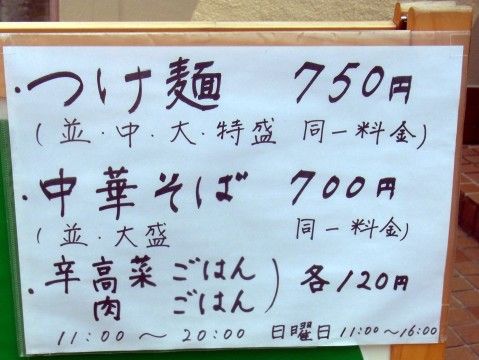 ・つけ麺 750円
(並・中・大・特盛 同一料金)
・中華そば 700円
(並・大盛 同一料金)
・辛高菜ごはん 各120円
肉ごはん
11:00～20:00 日曜日11:00～16:00